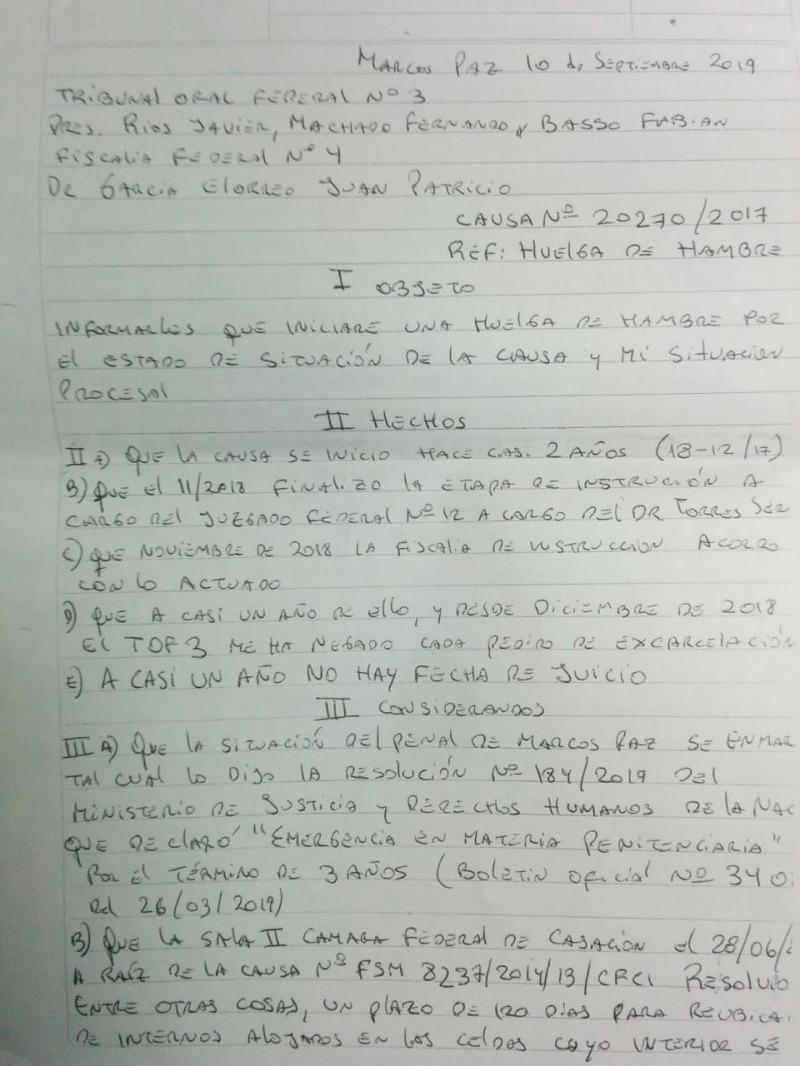 MARCOS PAZ 10 de SEPTIEMBRE 2019
TRIBUNAL ORAL FEDERAL Nº 3
PRES. RIOS JAVIER, MACHADO FERNANDO y BASSO FABIAN
FISCALIA FEDERAL Nº 4
DR GARCIA ELORREO JUAN PATRICIO
CAUSA Nº 20270/2017
REF: HUELGA DE HAMBRE
I OBJETO
INFORMARLES QUE INICIARE UNA HUELGA DE HAMBRE POR
EL ESTADO DE SITUACIÓN DE LA CAUSA y MI SITUACION
PROCESAL
II HECHOS
II A) QUE LA CAUSA SE INICIO HACE CASI 2 AÑOS (18-12/17)
B) QUE EL 11/2018 FINALIZO LA ETAPA DE INSTRUCIÓN A
CARGO DEL JUZGADO FEDERAL Nº 12 A CARGO DEL DR TORRES SER
C) QUE NOVIEMBRE DE 2018 LA FISCALIA DE INSTRUCCION ACORRO
CON LO ACTUADO
D) QUE A CASI UN AÑO DE ELLO, Y DESDE DICIEMBRE DE 2018
EL TOF 3 ME HA NEGADO CADA PEDIDO DE EXCARCELACIÓN
E) A CASI UN AÑO NO HAY FECHA DE JUICIO
III CONSIDERANDOS
III A) QUE LA SITUACIÓN DEL PENAL DE MARCOS PAZ SE ENMAR
TAL CUAL LO DIJO LA RESOLUCIÓN Nº 184/2019 DEL
MINISTERIO DE JUSTICIA y DERECHOS HUMANOS DE LA NAC
QUE DECLARÓ "EMERGENCIA EN MATERIA PENITENCIARIA"
POR EL TÉRMINO DE 3 AÑOS (BOLETIN OFICIAL Nº 340
DEL 26/03/2019)
B) QUE LA SALA II CAMARA FEDERAL DE CASACIÓN EL 28/06/
A RAÍZ DE LA CAUSA Nº FSM 8237/2014/13/CFC1 RESOLVIO
ENTRE OTRAS COSAS, UN PLAZO DE 120 DIAS PARA REUBICA
DE INTERNOS ALOJADOS EN LAS CELDAS CUYO INTERIOR SE